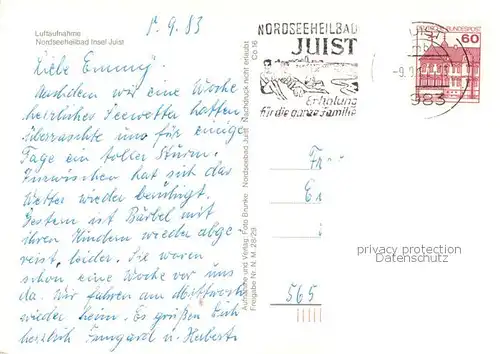 Luftaufnahme
Nordseeheilbad Insel Juist
9.83
Liebe Emmy!
Nachdem wir eine Woche
herrliches Seewetter hatten,
überraschte uns für einige
Tage ein toller Sturm.
Inzwischen hat sich das
Wetter wieder beruhigt.
Gestern ist Bärbel mit
ihren Kindern wieder abge-
reist, leider. Sie waren
schon eine Woche vor uns
da. Wir fahren am Mittwoch
wieder heim. Es grüßen Dich
herzlich Irmgard u. Herbert
Aufnahme und Verlag: Foto Brunke Nordseebad Juist Nachdruck nicht erlaubt
Freigabe Nr. N. M. 28/29 Co 16
NORDSEEHEILBAD
JUIST
Erholung
für die ganze Familie
JUIST
-9.9
983
DEUTSCHE BUNDESPOST
60
Fr
565
privacy protection
VOMADECS.de